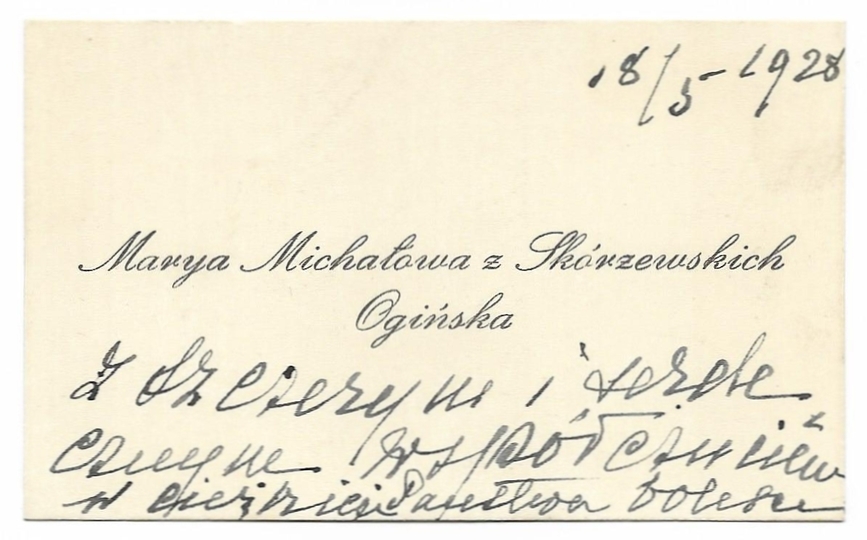 18/5 1928
Marya Michałowa z Skórzewskich
Ogińska
Z szczerym i serde
cznym współczuciem
w ciężkiej Państwa boleści